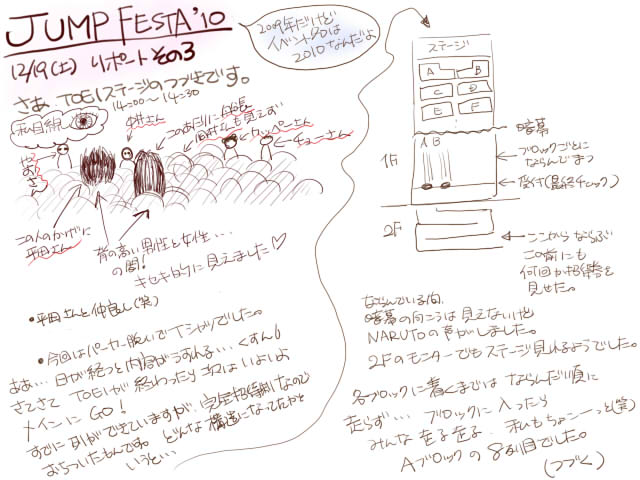 JUMP FESTA'10
2009年だけど
イベント名は
2010なんだよ
12/19(土) リポートその3
さあ、TOEIステージのつづきです。
14:00〜14:30
私目線
中井さん
このあたりに
見えず
カッパーさん
チョーさん
やおさん
この人のかげに
平田さん
背の高い男性と女性…
の間!
キセキ的に見えました♡
・平田さんと仲良し(笑)
・今回はパーカー脱いでTシャツでした。
まあ…日が経つと内容がうすれる…くすん6
さてさて TOEIが終わったら次はいよいよ
メインにGO!
すでに列ができていますが、完全招待制なので
おちついたもんです。どんな構造になってたかと
いうと…
ステージ
A B
C D
E F
暗幕
1F
A B
ブロックごとに
ならんでまつ
受付(最終チェック)
2F
ここからならぶ
この前にも
何回か招待券を
見せた。
ならんでいる間、
暗幕の向こうは見えないけど
NARUTOの声がしました。
2Fのモニターでもステージ見れるようでした。
各ブロックに着くまではならんだ順に
走らず… ブロックに入ったら
みんな走る走る、私もちょこーっと(笑)
Aブロックの8列目でした。
(つづく)